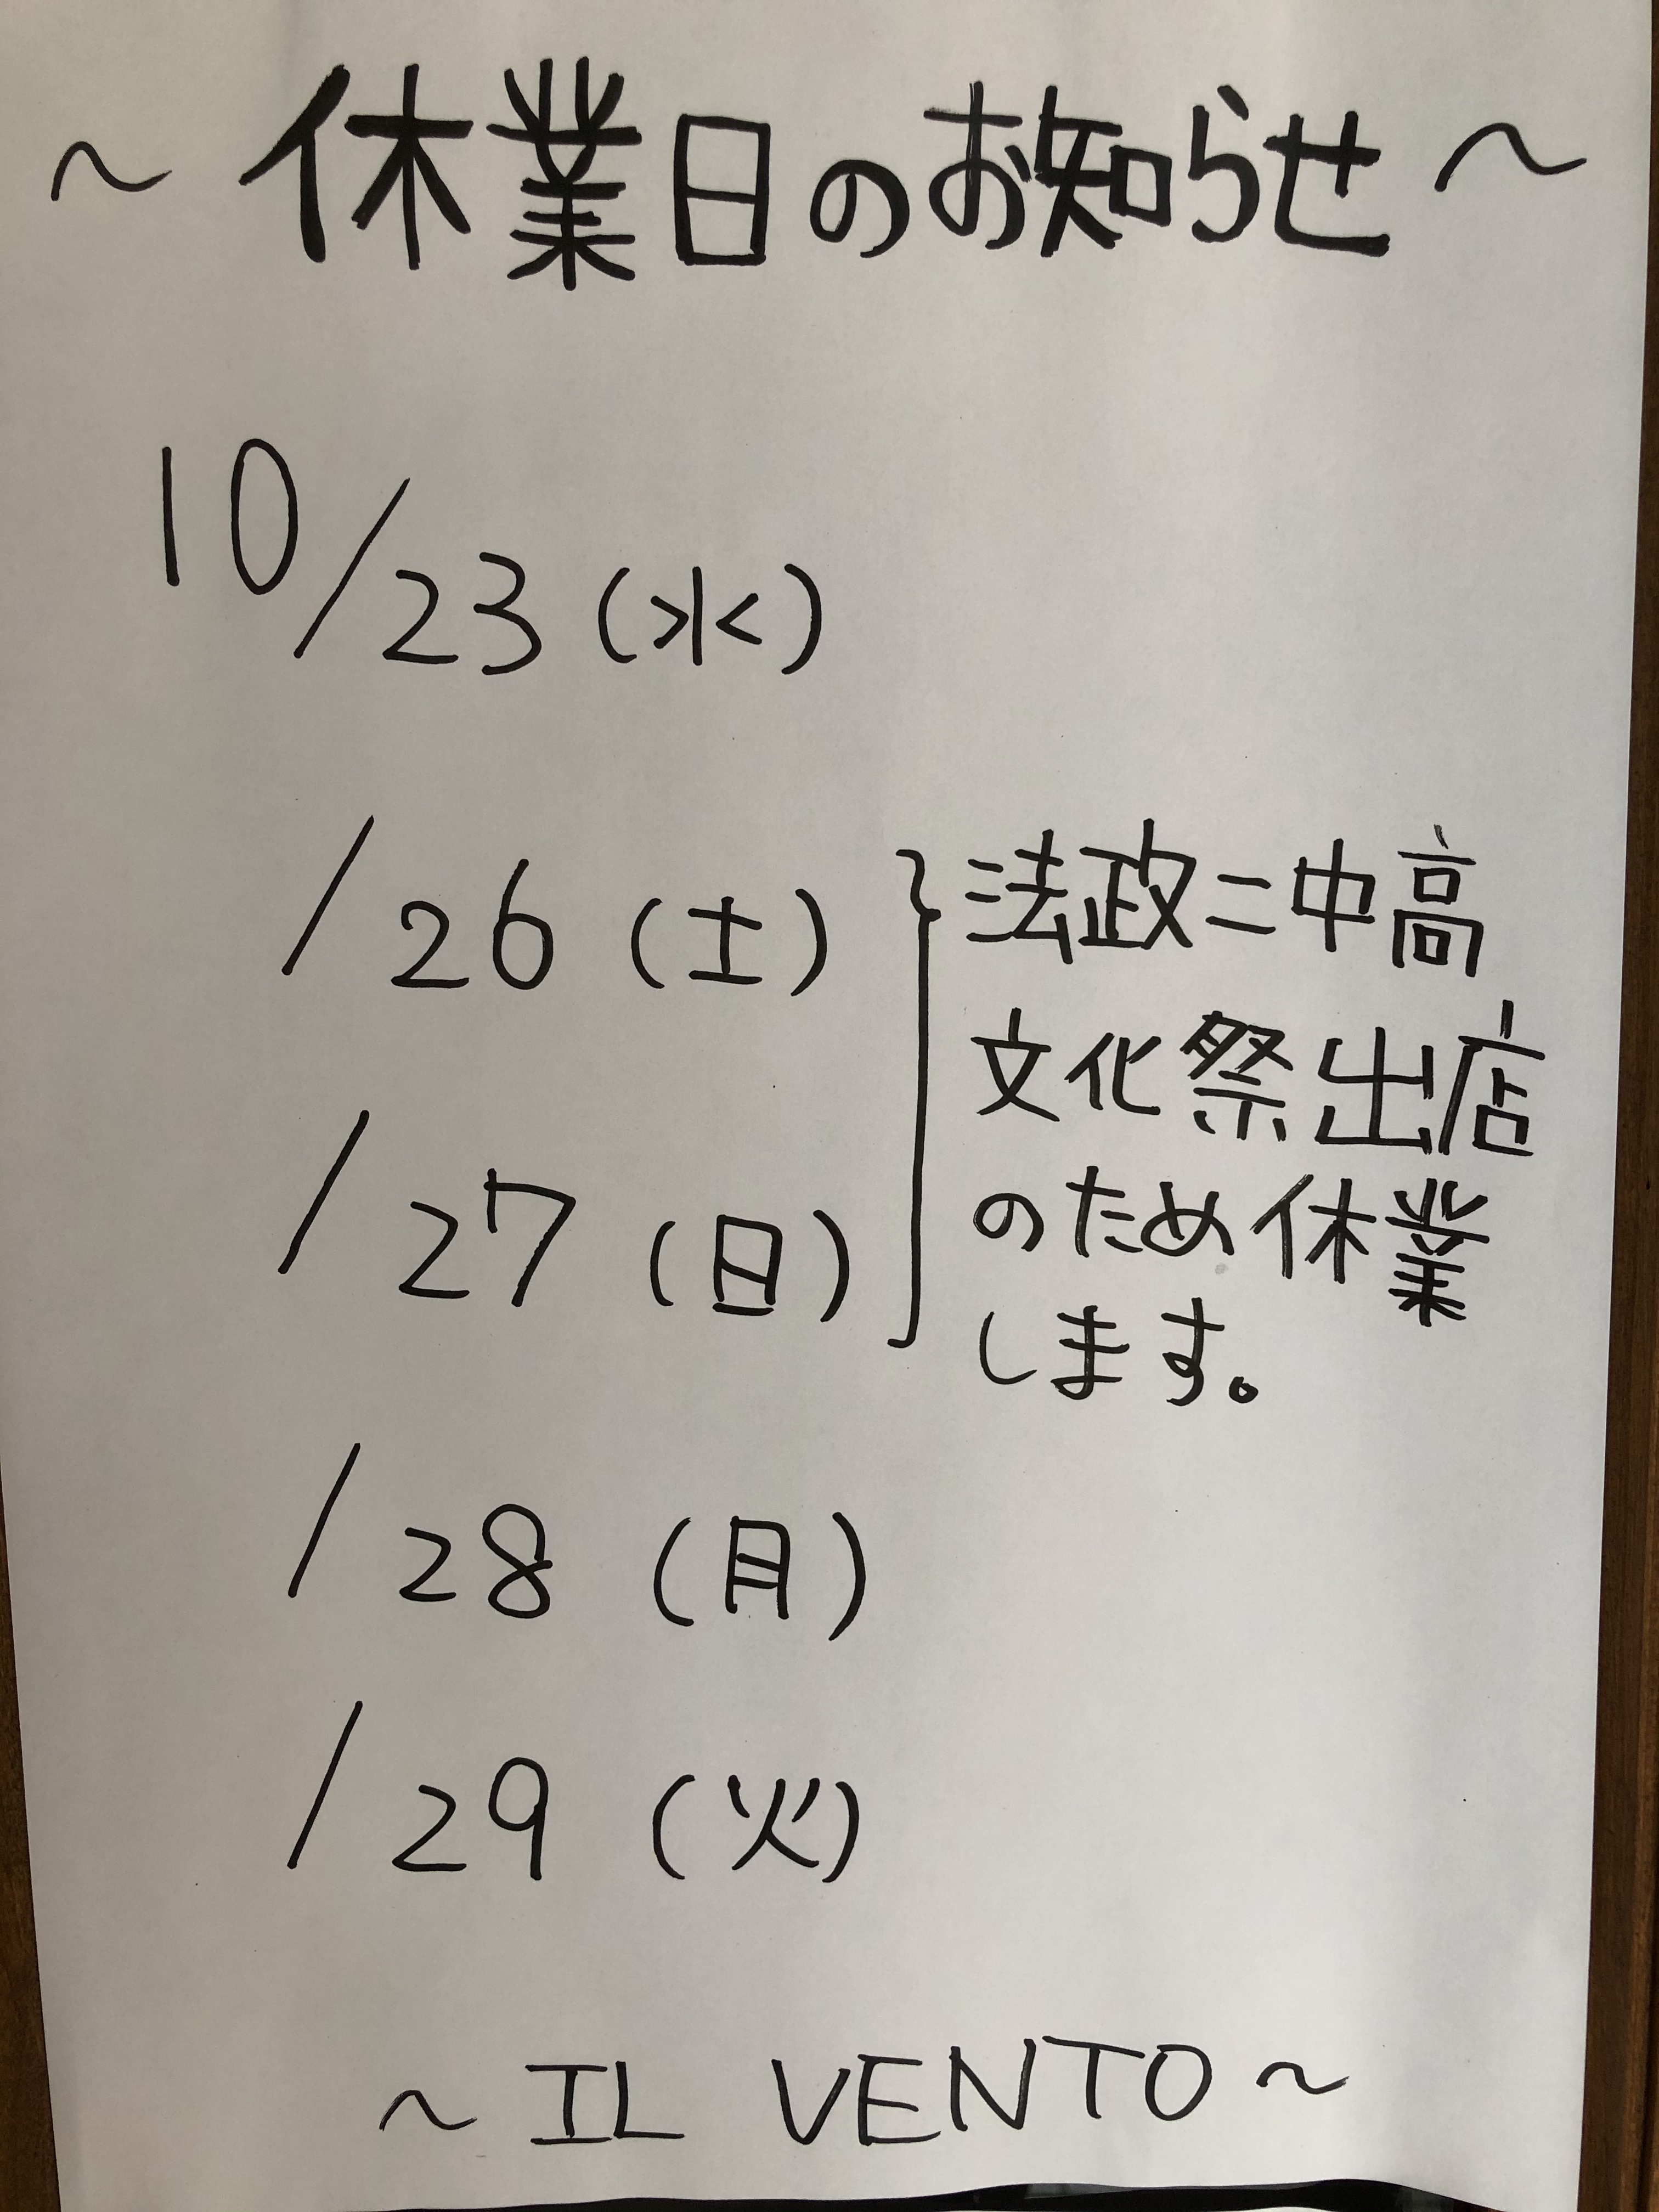 ～休業日のお知らせ～
10/23(水)
/26(土)
法政二中高
文化祭出店
/27(日)
のため休業
します。
/28(月)
/29(火)
～IL VENTO～